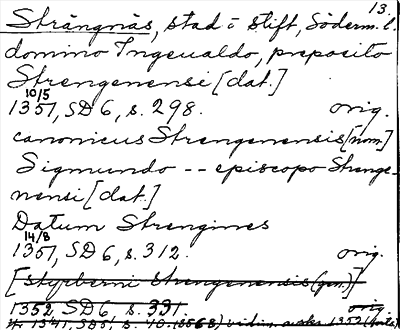 13.
Strängnäs, stad o stift, Söderm. l.
domino Ingeualdo, preposito
Strengenensi [dat.]
10/5
1351, SD 6, s. 298. orig.
canonicus Strengenensis [nom]
Sigmundo -- episcopo Strenge-
nensi [dat.]
Datum Strengines
14/8
1351, SD 6, s. 312. orig.
[styrberni Strengenensis (gen.)]
1352 SD 6 s. 331. orig
1341, SD 5, s. 10. (3568) vidim.